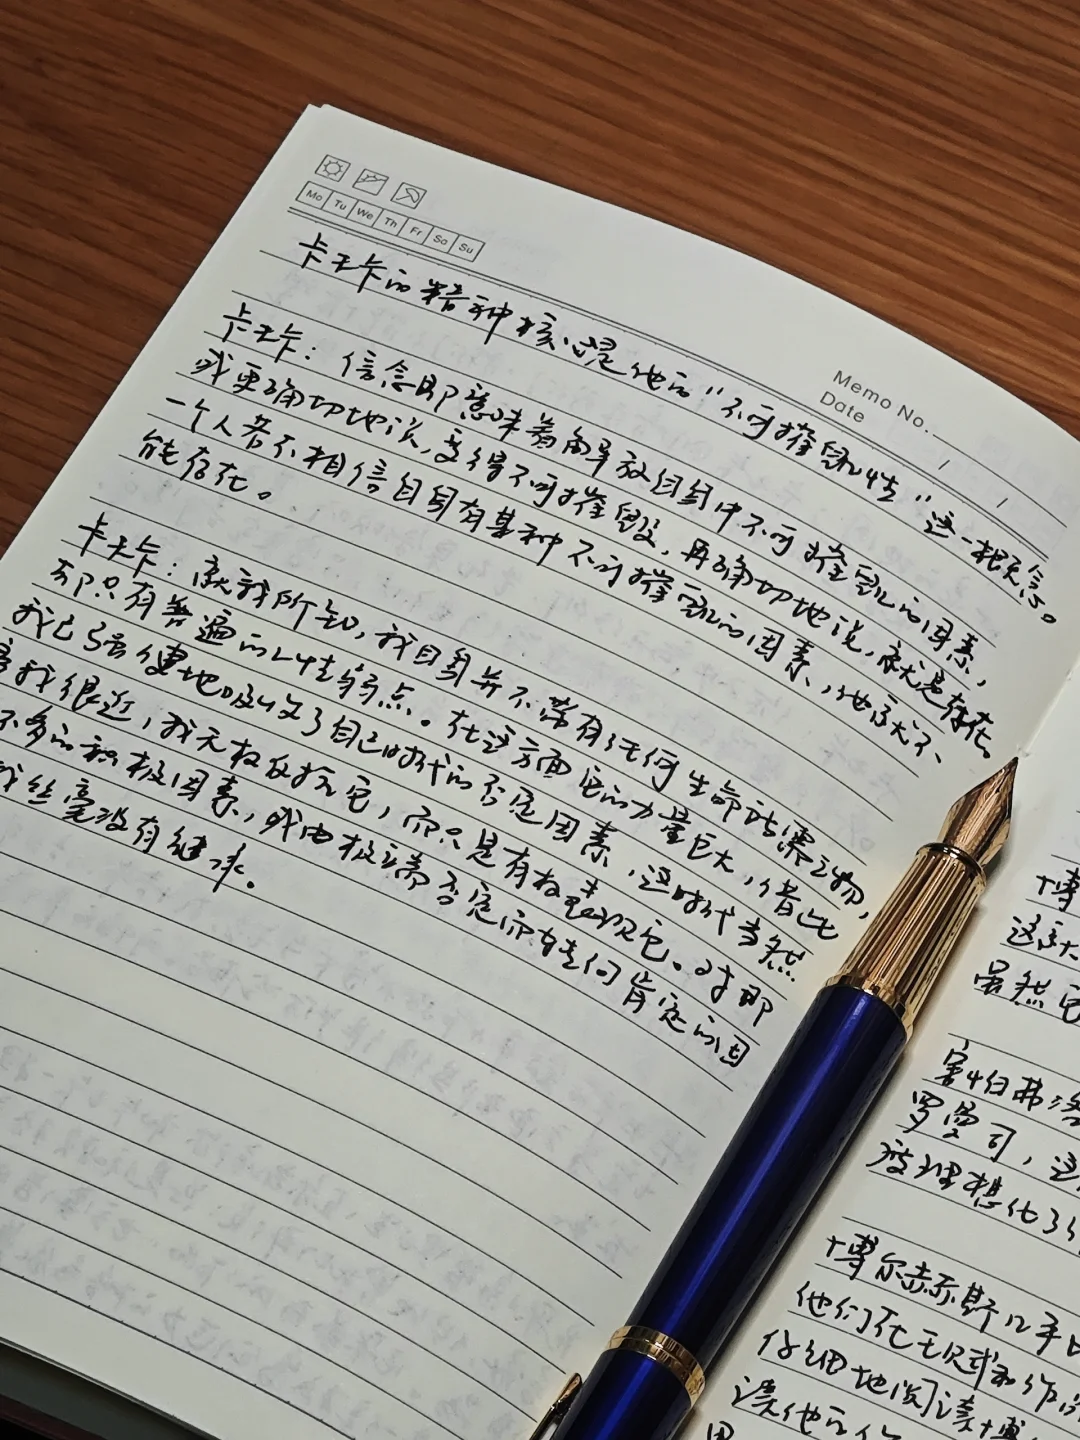 Mo Tu We Th Fr Sa Su
Memo No.
Date
卡夫卡的精神核心是他的“不可摧毁性”这一概念。
卡夫卡：信念即意味着解放自身中不可摧毁的因素，
或更确切地说，变得不可摧毁，再确切地说，就是存在。
一个人若不相信自身有某种不可摧毁的因素，他就不
能存在。
卡夫卡：就我所知，我自身并不带有任何生命所需之物，
而只有普遍的人性弱点。在这方面它的力量巨大，借此
我已强健地吸收了自己时代的否定因素，这时代当然
离我很近，我无权反抗它，而只是有权表现它。对那
不多的积极因素，或由极端否定而转向肯定的因
我丝毫没有继承。
博
这就
虽然它
害怕弗洛
罗曼司，这
被理想化了
博尔赫斯几乎
他们在无限和
仔细地阅读博
读他的作